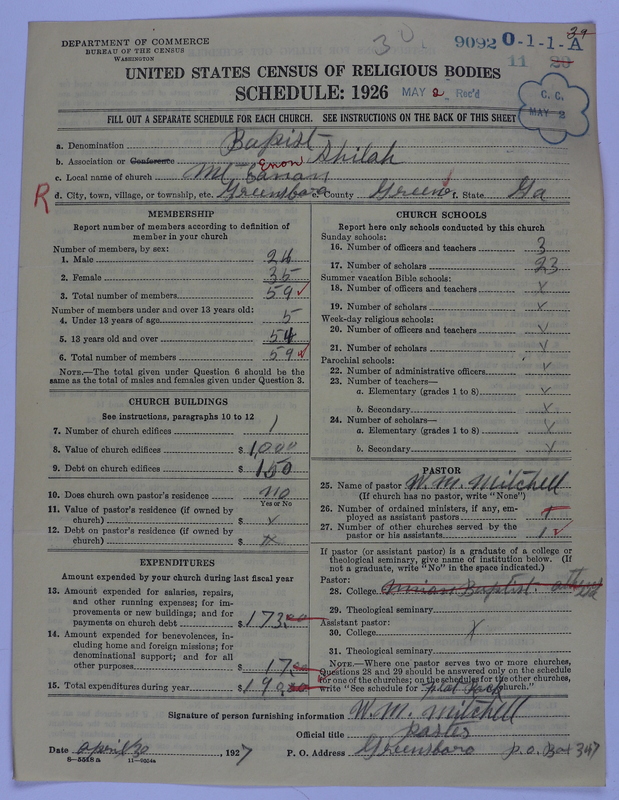 DEPARTMENT OF COMMERCE
BUREAU OF THE CENSUS
WASHINGTON
30.
9092 0-1-1-A 39
11 20
UNITED STATES CENSUS OF RELIGIOUS BODIES
SCHEDULE: 1926 MAY 2 Rec'd
C. C. MAY 2
FILL OUT A SEPARATE SCHEDULE FOR EACH CHURCH. SEE INSTRUCTIONS ON THE BACK OF THIS SHEET
a. Denomination Bapist
b. Association or Conference Shilah
c. Local name of church Mt. Canan Enon
R d. City, town, village, or township, etc. Greensboro e. County Greene f. State Ga
MEMBERSHIP
Report number of members according to definition of member in your church
Number of members, by sex:
1. Male 24
2. Female 35
3. Total number of members 59 ✓
Number of members under and over 13 years old:
4. Under 13 years of age 5
5. 13 years old and over 54
6. Total number of members 59 ✓
NOTE.—The total given under Question 6 should be the same as the total of males and females given under Question 3.
CHURCH BUILDINGS
See instructions, paragraphs 10 to 12
7. Number of church edifices 1
8. Value of church edifices $ 1,000
9. Debt on church edifices $ 150
10. Does church own pastor's residence no
Yes or No
11. Value of pastor's residence (if owned by church) $ x
12. Debt on pastor's residence (if owned by church) $ x
EXPENDITURES
Amount expended by your church during last fiscal year
13. Amount expended for salaries, repairs, and other running expenses; for improvements or new buildings; and for payments on church debt $ 173.00
14. Amount expended for benevolences, including home and foreign missions; for denominational support; and for all other purposes $ 17.00
15. Total expenditures during year $ 190.00
CHURCH SCHOOLS
Report here only schools conducted by this church
Sunday schools:
16. Number of officers and teachers 3
17. Number of scholars 23
Summer vacation Bible schools:
18. Number of officers and teachers x
19. Number of scholars x
Week-day religious schools:
20. Number of officers and teachers x
21. Number of scholars x
Parochial schools:
22. Number of administrative officers x
23. Number of teachers—
a. Elementary (grades 1 to 8) x
b. Secondary x
24. Number of scholars—
a. Elementary (grades 1 to 8) x
b. Secondary x
PASTOR
25. Name of pastor W. M. Mitchell
(If church has no pastor, write "None")
26. Number of ordained ministers, if any, employed as assistant pastors
27. Number of other churches served by the pastor or his assistants 1 ✓
If pastor (or assistant pastor) is a graduate of a college or theological seminary, give name of institution below. (If not a graduate, write "No" in the space indicated.)
Pastor:
28. College Baptist.
29. Theological seminary
Assistant pastor:
30. College x
31. Theological seminary
NOTE.—Where one pastor serves two or more churches, Questions 28 and 29 should be answered only on the schedule for one of the churches; on the schedules for the other churches, write "See schedule for church."
Signature of person furnishing information W. M. Mitchell
Official title Paster
Date April 30, 1927 P. O. Address Greensboro P.O. Box 347
8-5518 a 11-9024a